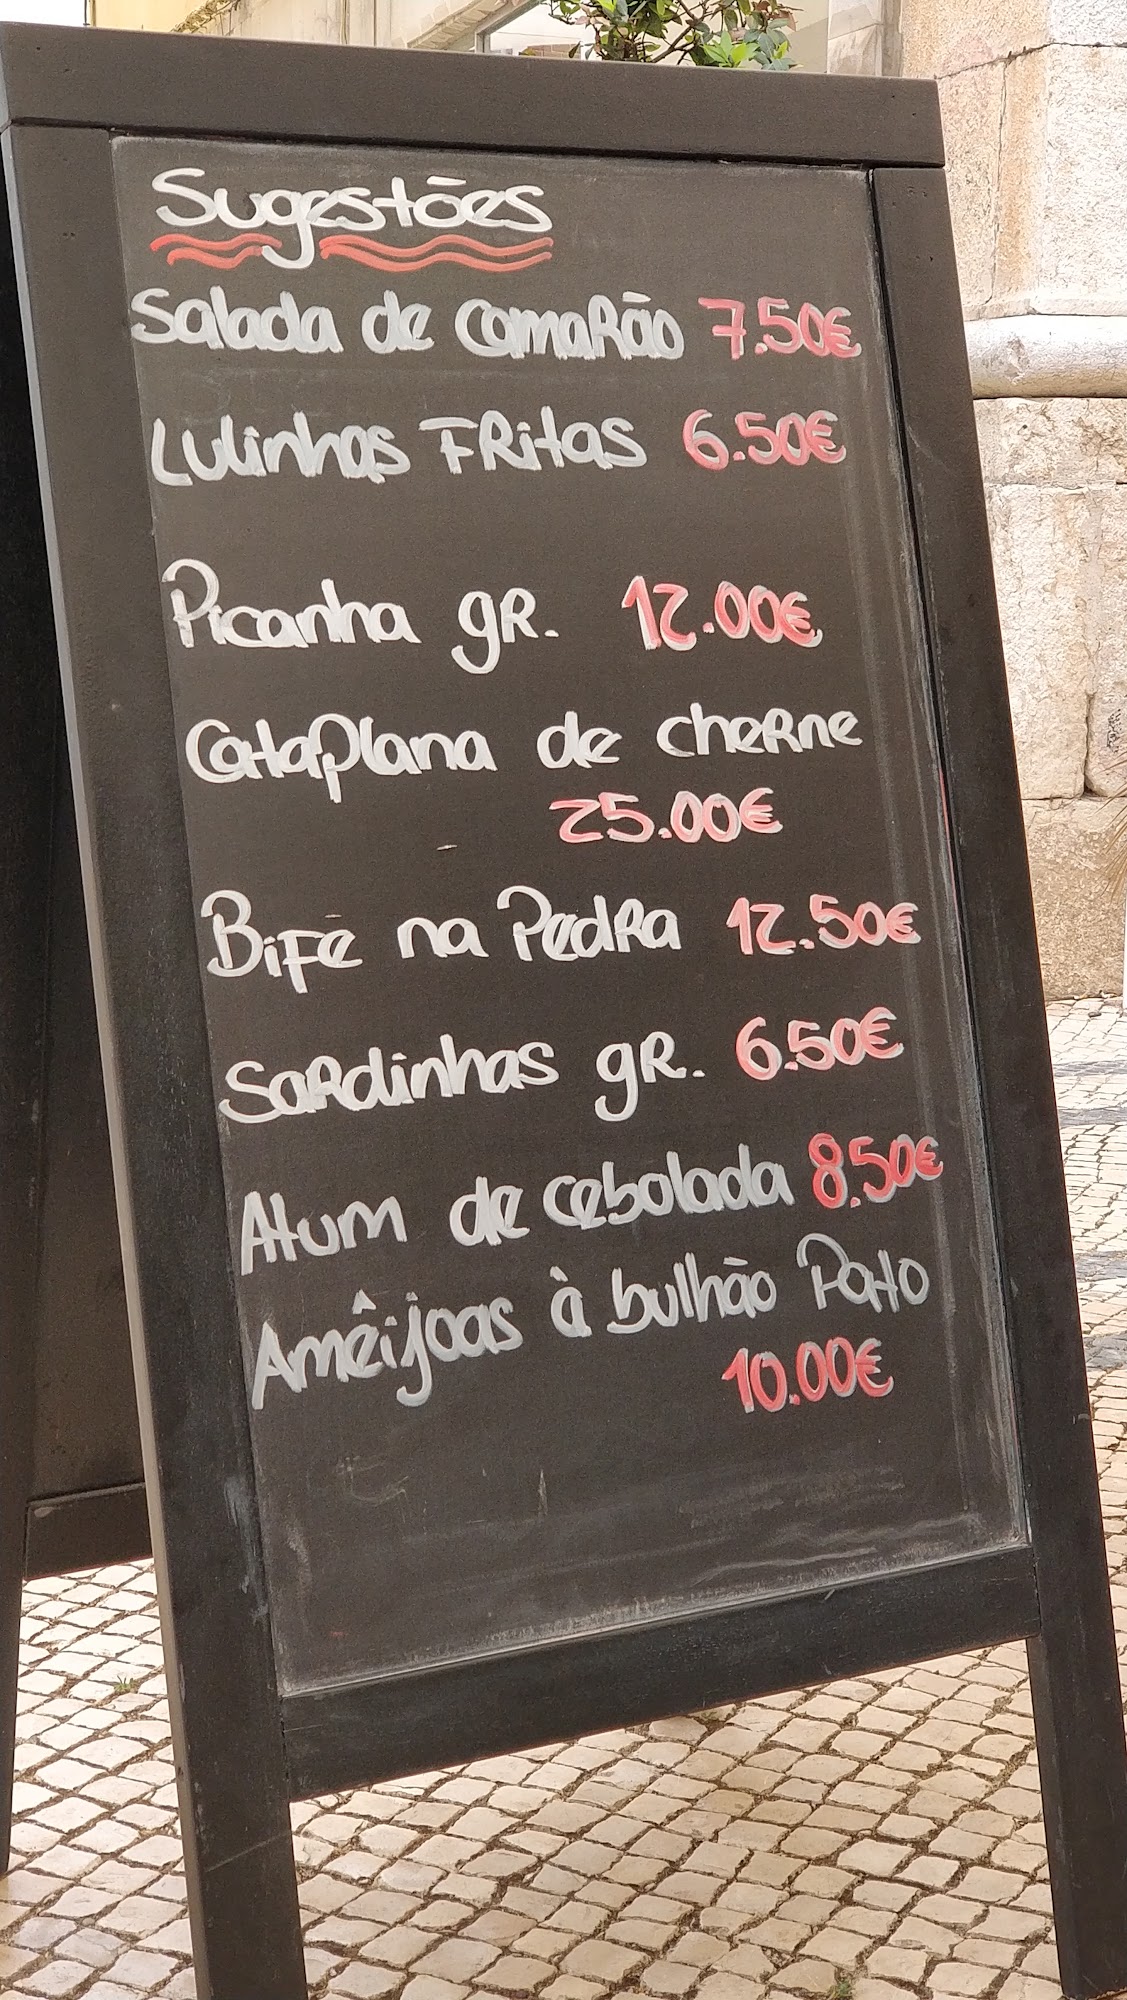 Sugestões
Salada de camarão 7.50€
Lulinhas Fritas 6.50€
Picanha gr. 12.00€
Cataplana de cherne
25.00€
Bife na Pedra 12.50€
Sardinhas gr. 6.50€
Atum de cebolada 8.50€
Amêijoas à bulhão Pato
10.00€